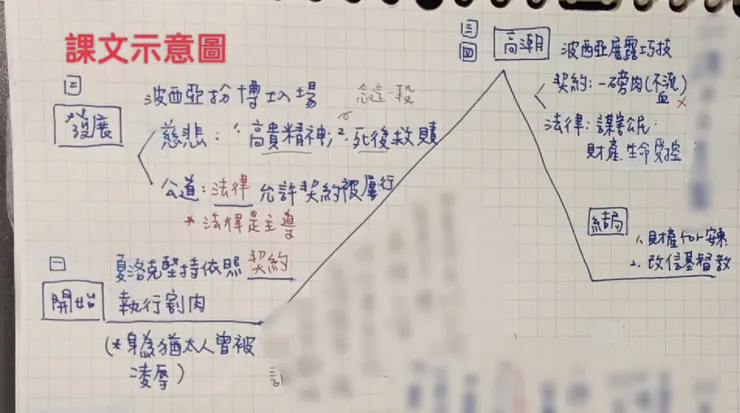 課文示意圖
三
四
高潮
波西亞展露巧技
契約：一磅肉(不流血)
法律：謀害公民：
財產、生命受控
二
發展
波西亞扮博士入場
念這一段
慈悲：1.高貴精神；2.死後救贖
公道：法律允許契約被履行
*法律是主導
結局
1.財產for安東
2.改信基督教
一
開始
夏洛克堅持依照契約
執行割肉
(*身為猶太人曾被
凌辱)